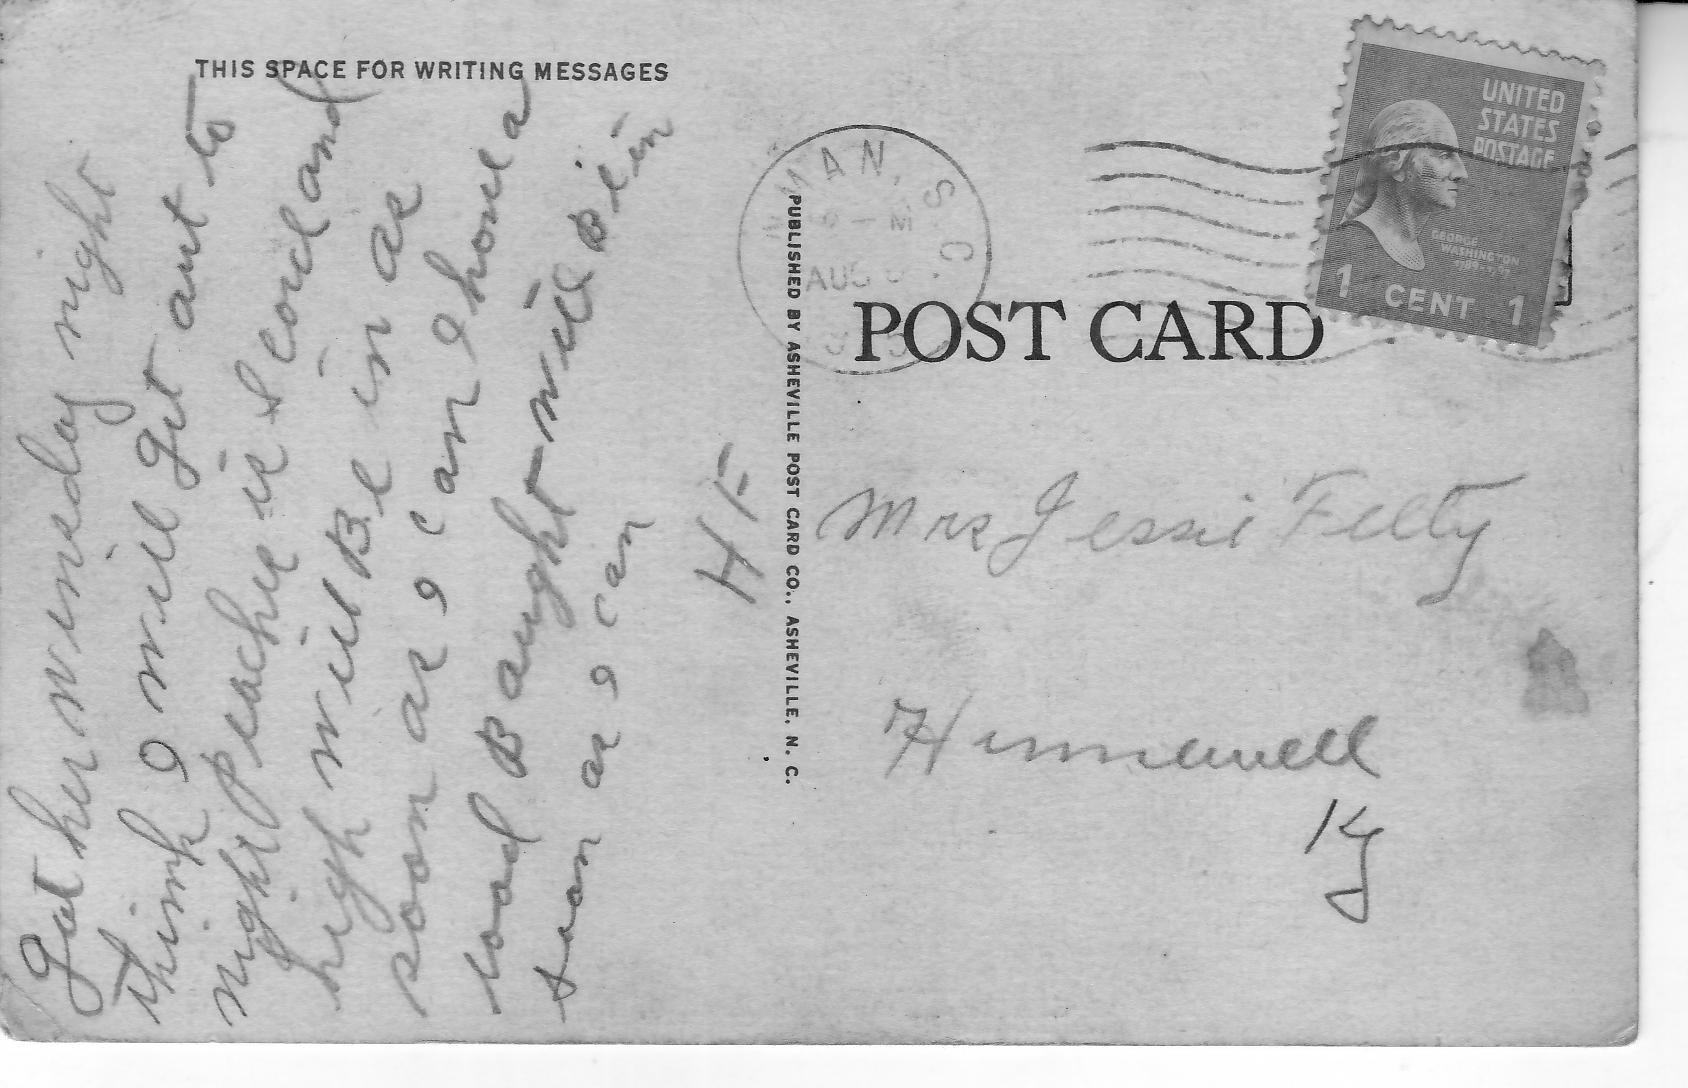 THIS SPACE FOR WRITING MESSAGES
got her wensday night
think I will get out to
night Peaches is Scord and
high will Be in as
soon as I can I have a
load Baught will Be in
soon as I can
HF
PUBLISHED BY ASHEVILLE POST CARD CO., ASHEVILLE, N. C.
MAN, S. C.
AUG
UNITED
STATES
POSTAGE
GEORGE
WASHINGTON
1789-1797
1 CENT 1
POST CARD
Mrs Jessie Felty
Hunnewell
Ky